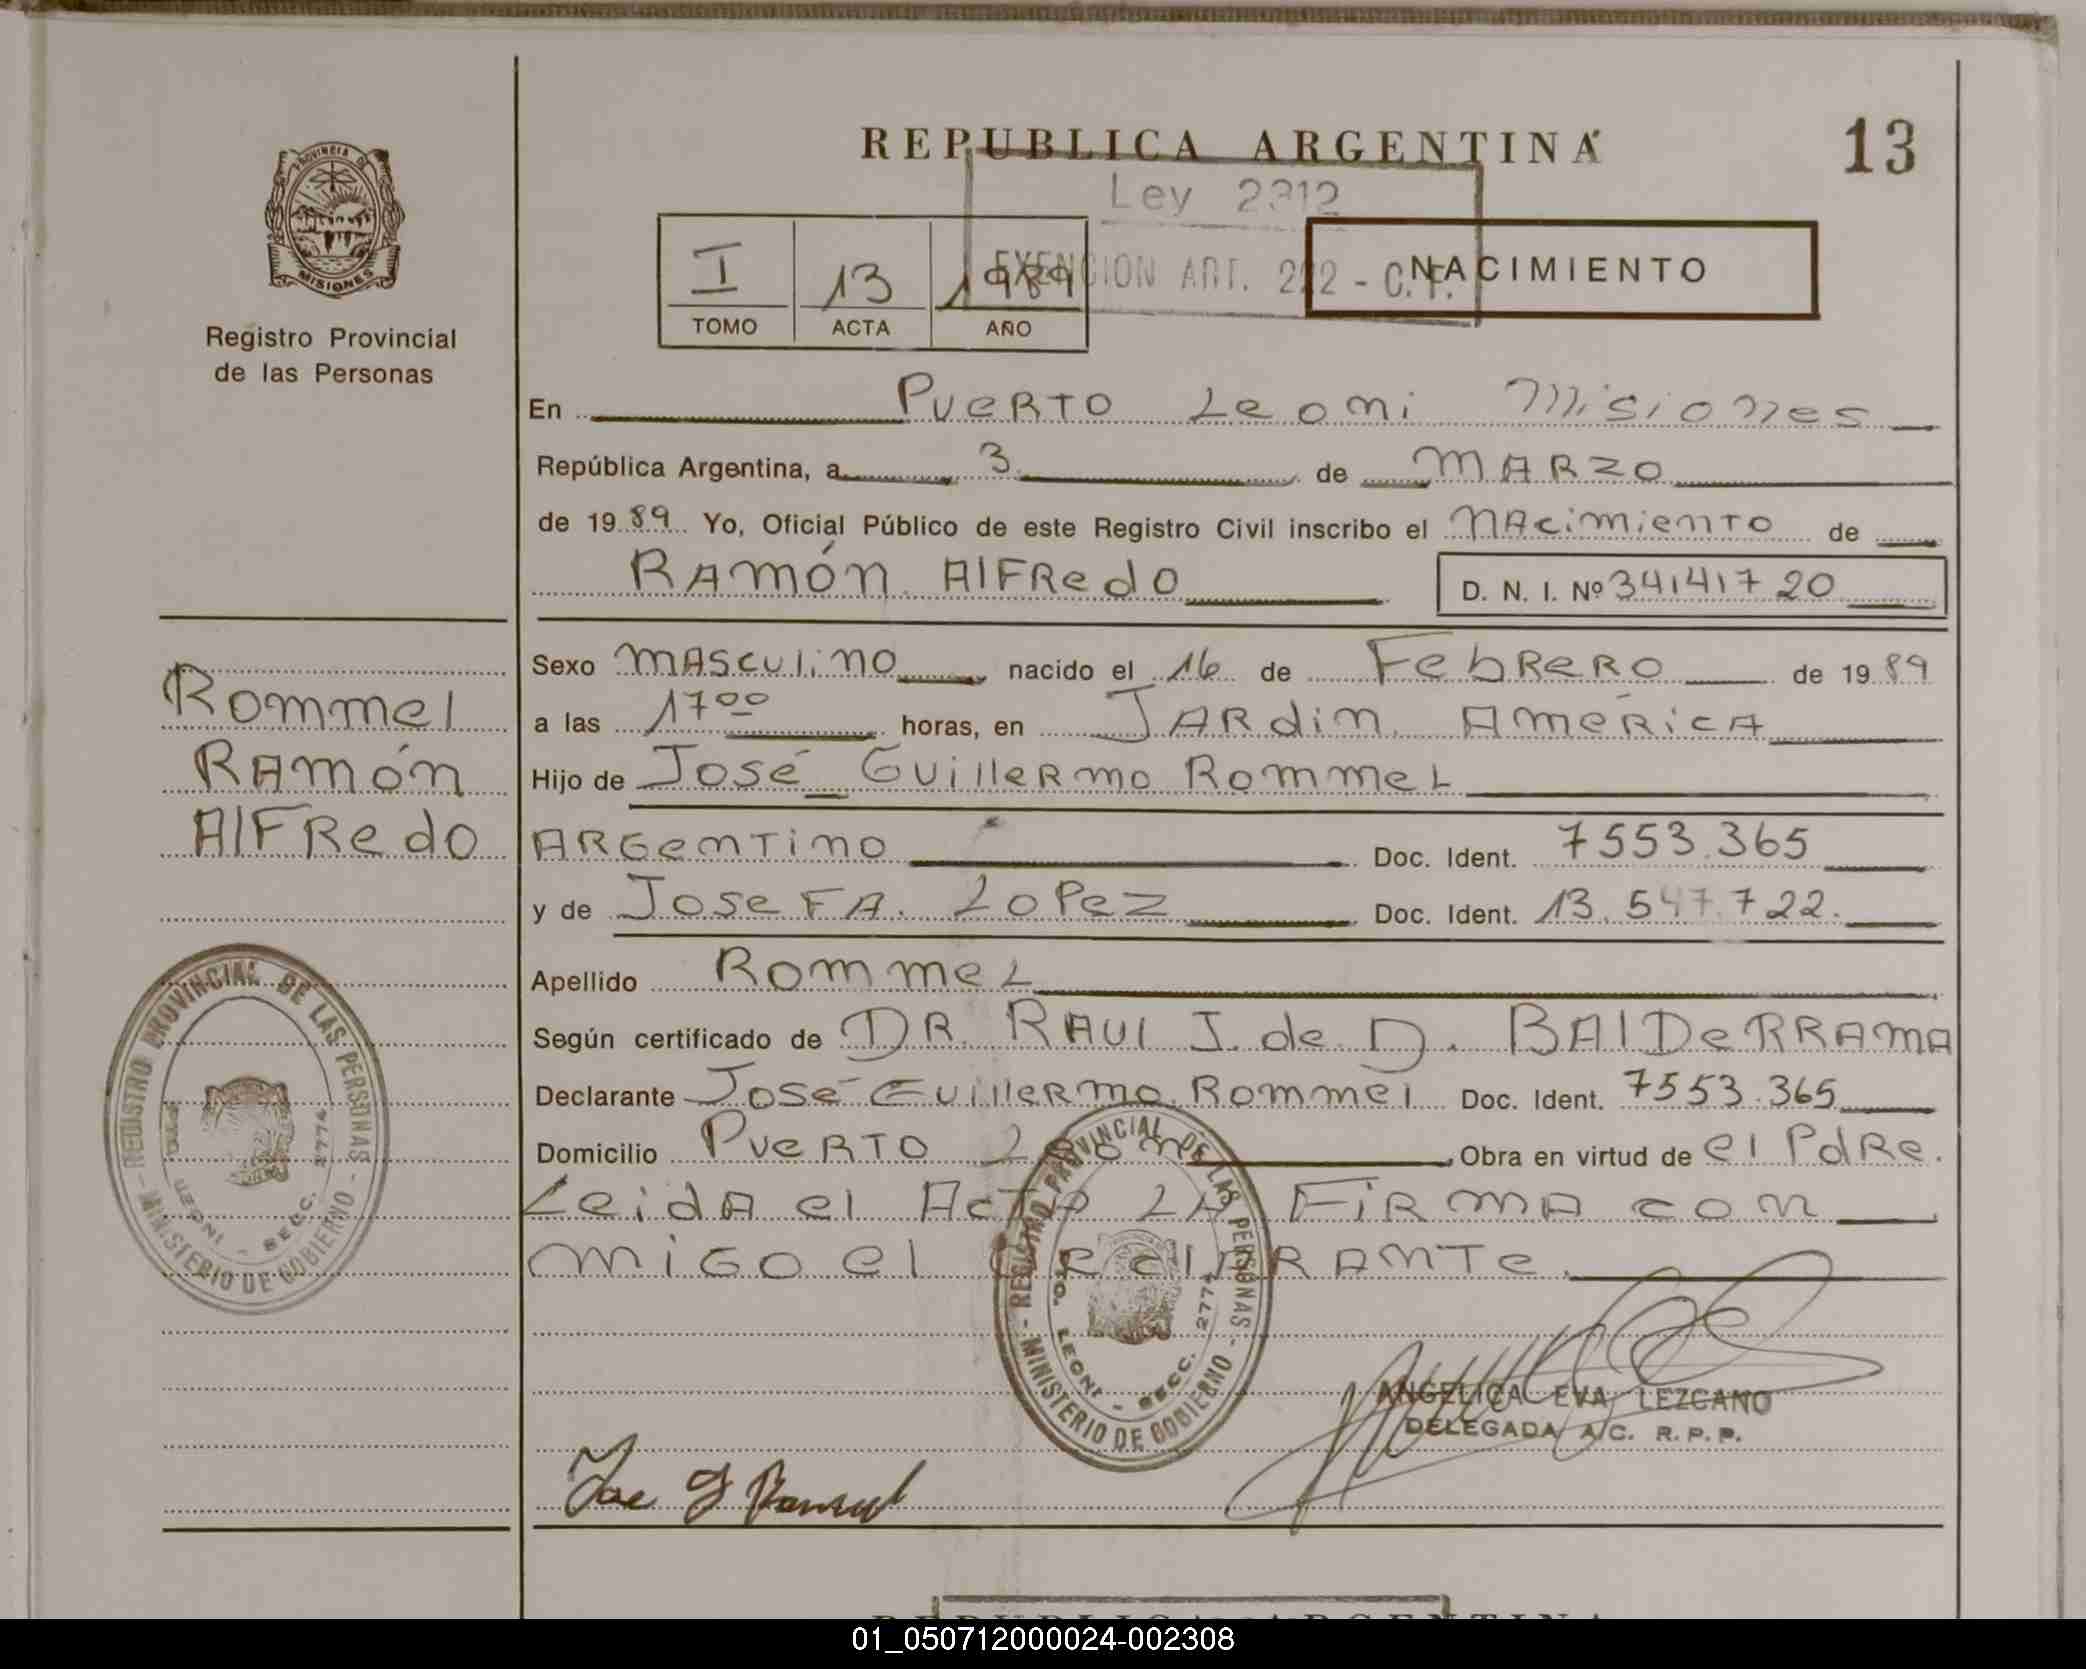 REPUBLICA ARGENTINA
13
PROVINCIA DE
MISIONES
Registro Provincial
de las Personas
Ley 2312
EXENCION ART. 222 - C.F.
NACIMIENTO
I 13 1989
TOMO ACTA AÑO
En Puerto Leoni Misiones
República Argentina, a 3 de MARZO
de 1989 Yo, Oficial Público de este Registro Civil inscribo el NAcimiento de
RAMÓN AlFRedo D. N. I. Nº 34141720
Sexo MAsculino nacido el 16 de FebReRo de 1989
a las 17⁰⁰ horas, en JARdin AméRicA
Hijo de José GuilleRmo Rommel
ARGentino Doc. Ident. 7553.365
y de JoseFA. LoPez Doc. Ident. 13.547.722.
Apellido Rommel
Según certificado de DR. RAUl J. de D. BAlDeRRAmA
Declarante José GuilleRmo Rommel Doc. Ident. 7553.365
Domicilio PueRTO Leoni Obra en virtud de el PdRe.
LeidA el AcTA LA FiRmA con
miGo el DeclARAnTe.
Rommel
RAmón
AlFRedo
- REGISTRO PROVINCIAL DE LAS PERSONAS -
MINISTERIO DE GOBIERNO
PTO. LEONI - SECC. 2774
- REGISTRO PROVINCIAL DE LAS PERSONAS -
MINISTERIO DE GOBIERNO
PTO. LEONI - SECC. 2774
ANGELICA EVA LEZCANO
DELEGADA A/C. R.P.P.
REPUBLICA ARGENTINA
01_050712000024-002308